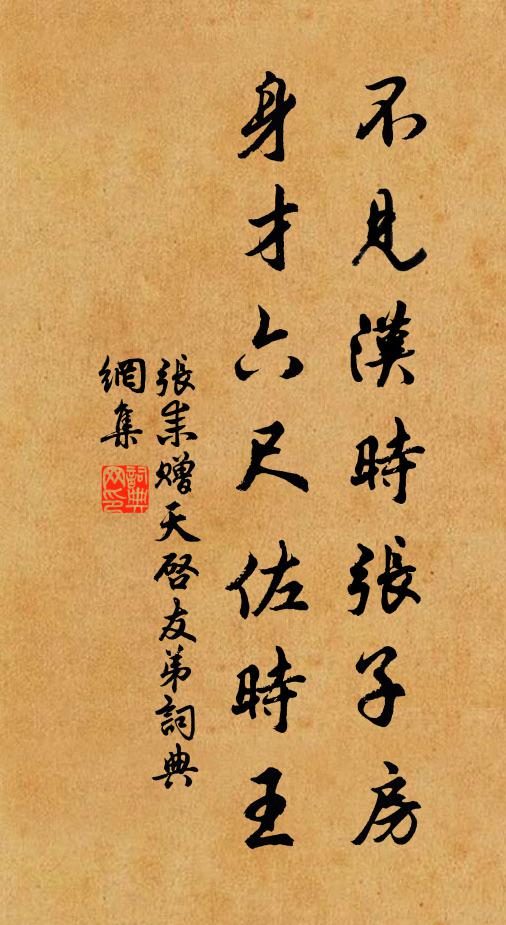 不見漢時張子房
身才六尺佐時王
張耒贈天啓友弟詞典
網集
詞典網印